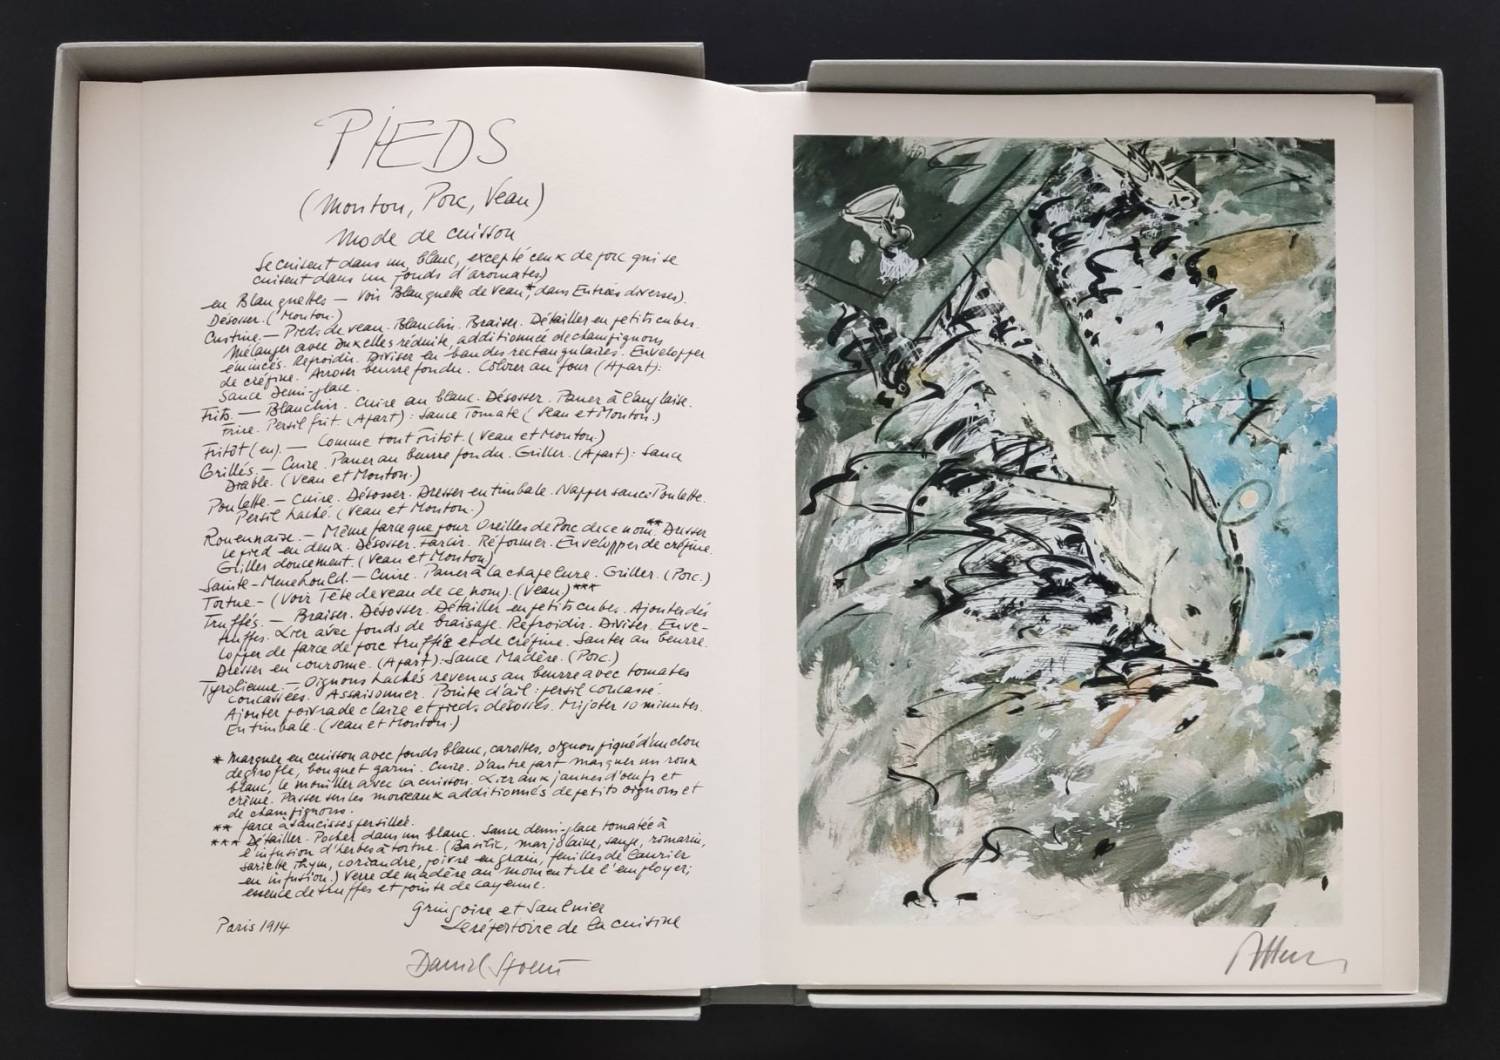 PIEDS
(Mouton, Porc, Veau)
Mode de cuisson
Se cuisent dans un blanc, excepté ceux de porc qui se
cuisent dans un fonds d'aromates)
en Blanquettes — Voir Blanquette de Veau*, dans Entrées diverses).
Désosser. (Mouton.)
Custine. — Pieds de veau. Blanchir. Braiser. Détailler en petits cubes.
Mélanger avec Duxelles réduite, additionnée de champignons
émincés. Refroidir. Diviser en bandes rectangulaires. Envelopper
de crépine. Arroser beurre fondu. Colorer au four (Apart):
Sauce Demi-glace.
Frits. — Blanchir. Cuire au blanc. Désosser. Paner à l'anglaise.
Frire. Persil frit. (Apart): Sauce Tomate (Veau et Mouton.)
Fritôt (en). — Comme tout Fritôt. (Veau et Mouton.)
Grillés. — Cuire. Paner au beurre fondu. Griller. (Apart): Sauce
Diable. (Veau et Mouton.)
Poulette. — Cuire. Désosser. Dresser en timbale. Napper sauce Poulette.
Persil haché. (Veau et Mouton.)
Rouennaise. — Même farce que pour Oreilles de Porc de ce nom.** Diviser
le pied en deux. Désosser. Farcir. Reformer. Envelopper de crépine.
Griller doucement. (Veau et Mouton)
Sainte-Menehould. — Cuire. Paner à la chapelure. Griller. (Porc.)
Tortue. — (Voir Tête de veau de ce nom). (Veau) ***
Truffés. — Braiser. Désosser. Détailler en petits cubes. Ajouter dés
truffes. Lier avec fonds de braisage. Refroidir. Diviser. Enve-
lopper de farce de porc truffée et de crépine. Sauter au beurre.
Dresser en couronne. (Apart): Sauce Madère. (Porc.)
Tyrolienne. — Oignons hachés revenus au beurre avec tomates
concassées. Assaisonner. Pointe d'ail; persil concassé.
Ajouter poivrade claire et pieds désossés. Mijoter 10 minutes.
En timbale. (Veau et Mouton.)
* Marquer en cuisson avec fonds blanc, carottes, oignon piqué d'un clou
de girofle, bouquet garni. Cuire. D'autre part marquer un roux
blanc, le mouiller avec la cuisson. Lier aux jaunes d'oeufs et
crème. Passer sur les morceaux additionnés de petits oignons et
de champignons.
** farce à saucisses persillée.
*** Détailler. Pocher dans un blanc. Sauce demi-glace tomatée à
l'infusion d'herbes à tortue. (Basilic, marjolaine, sauge, romarin,
sariette, thym, coriandre, poivre en grain, feuilles de laurier
en infusion.) Verre de madère au moment de l'employer;
essence de truffes et pointe de cayenne.
Gringoire et Saulnier
Paris 1914 Le répertoire de la cuisine
Daniel Spoerri